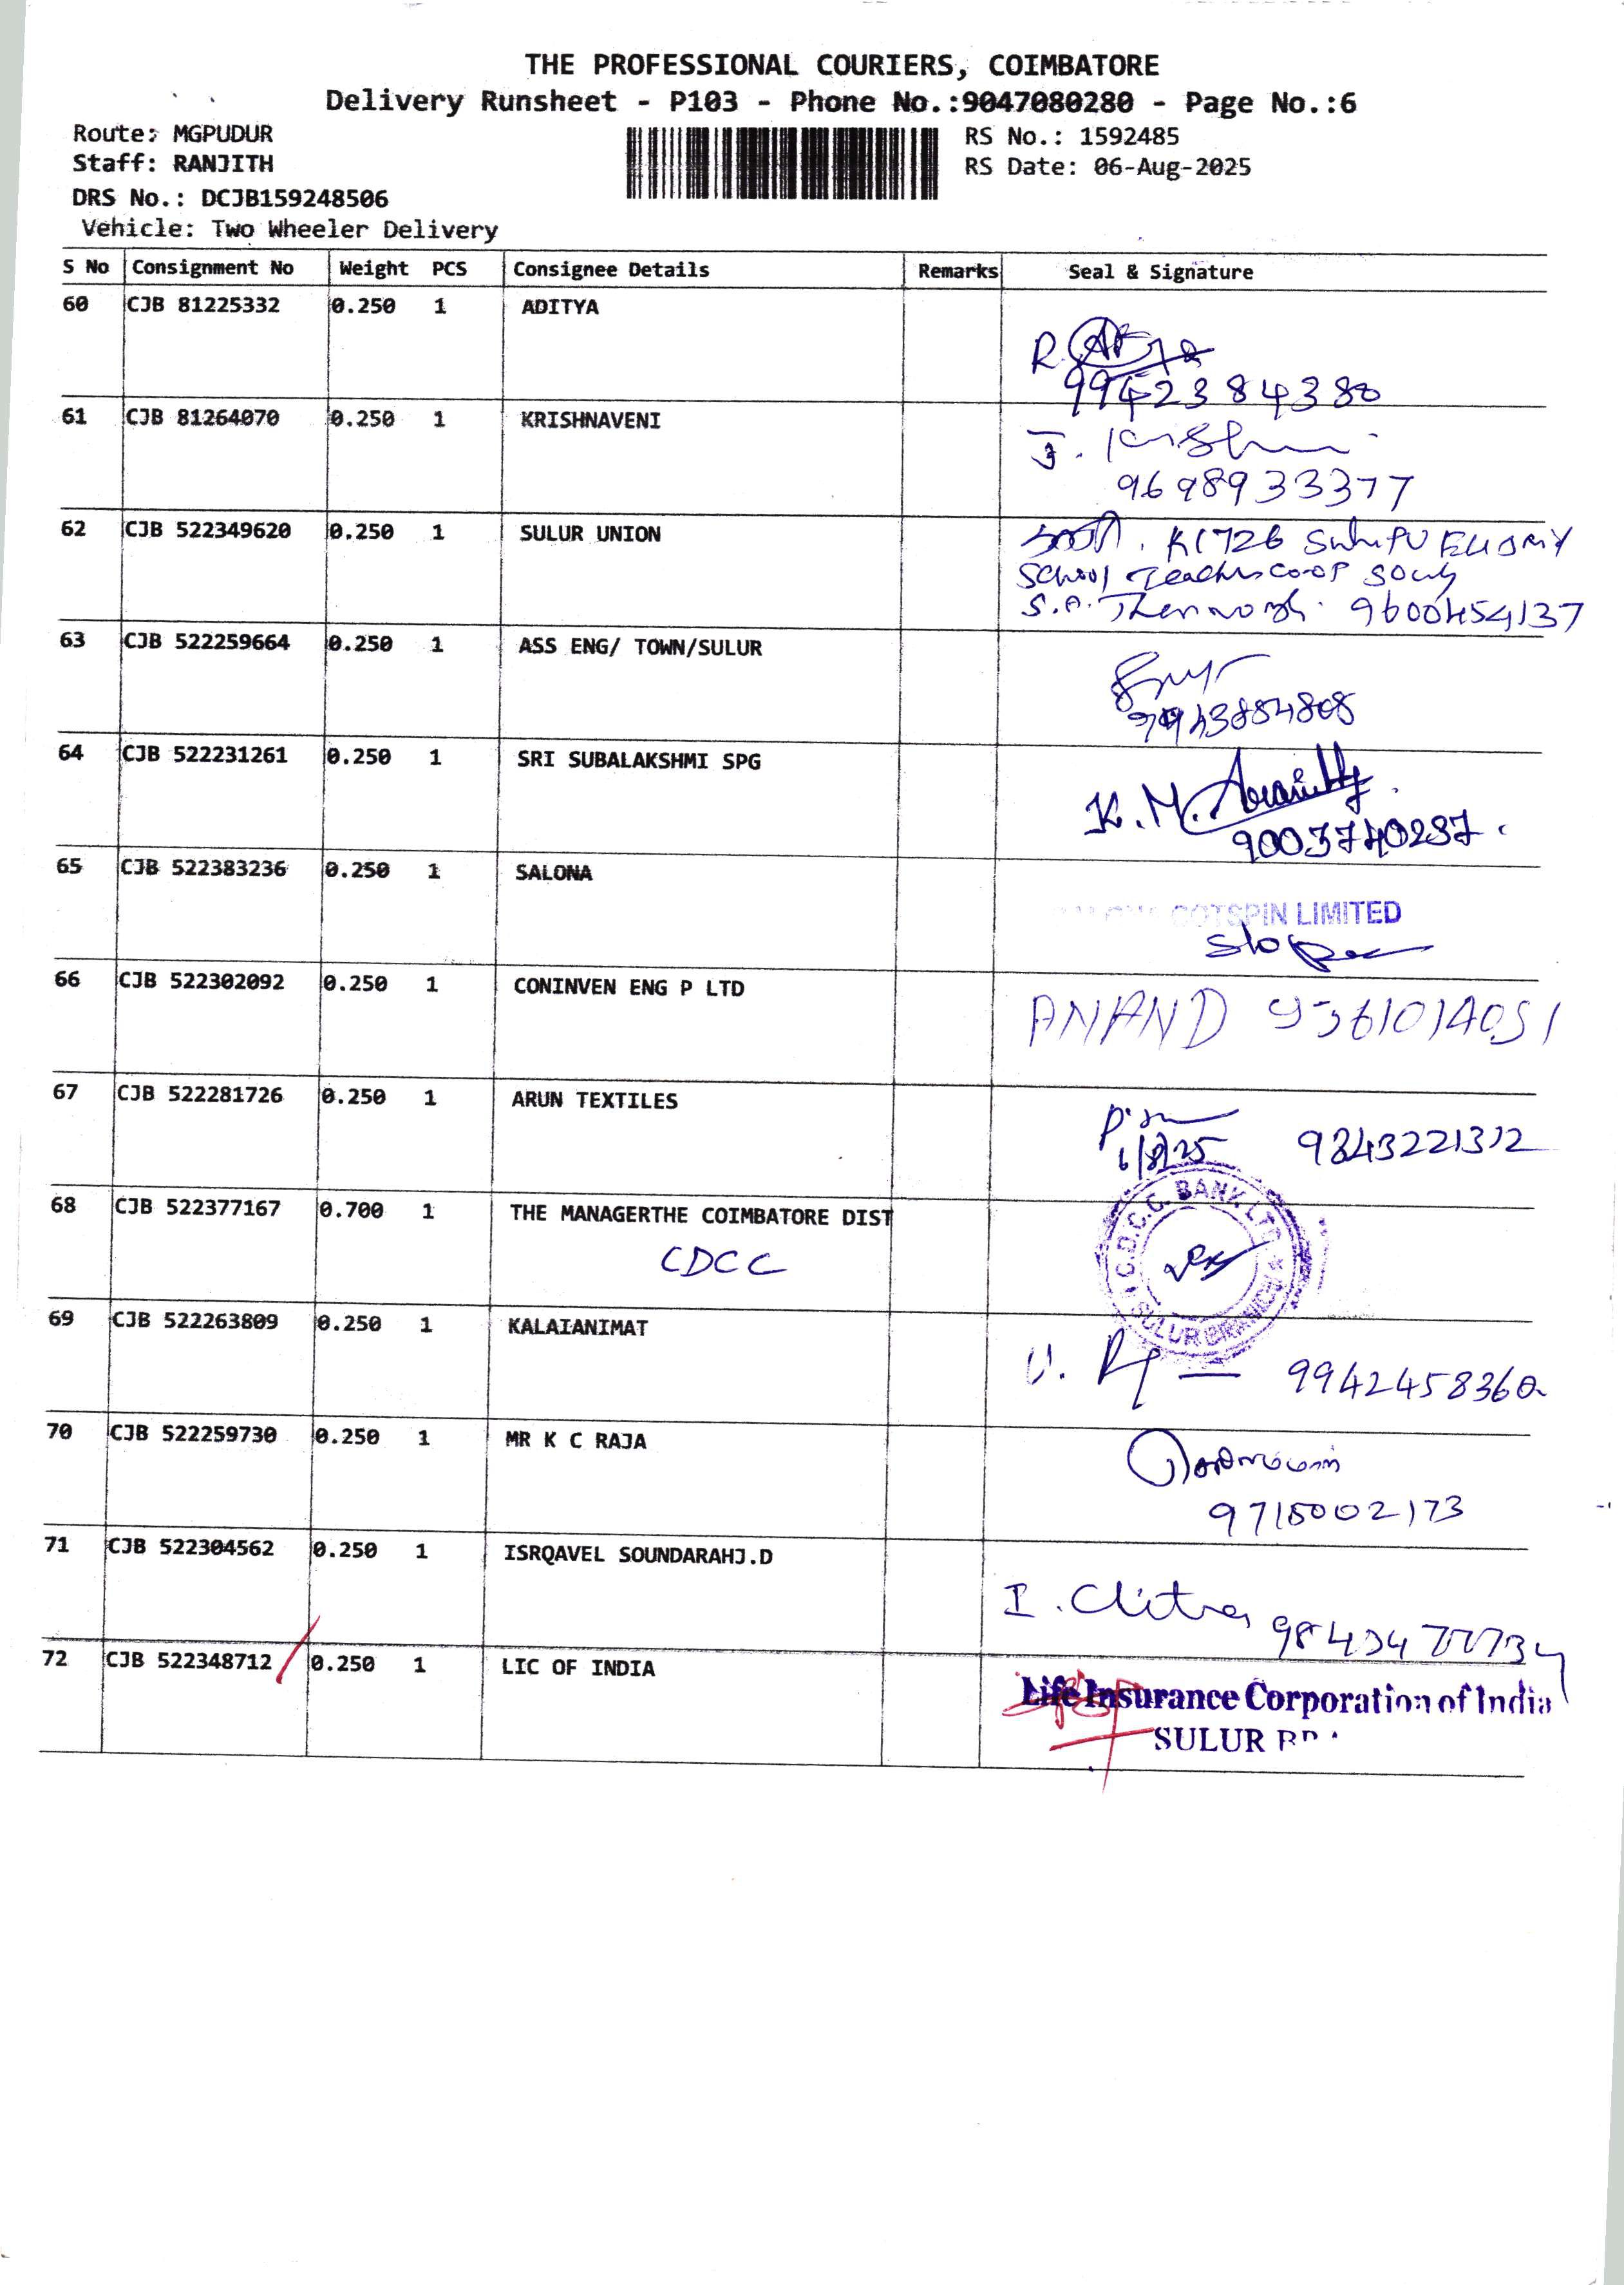 THE PROFESSIONAL COURIERS, COIMBATORE
Delivery Runsheet - P103 - Phone No.:9047080280 - Page No.:6
Route: MGPUDUR
Staff: RANJITH
DRS No.: DCJB159248506
Vehicle: Two Wheeler Delivery
RS No.: 1592485
RS Date: 06-Aug-2025
S No Consignment No Weight PCS Consignee Details Remarks Seal & Signature
60 CJB 81225332 0.250 1 ADITYA
R.
9942384380
61 CJB 81264070 0.250 1 KRISHNAVENI
J.
9698933377
62 CJB 522349620 0.250 1 SULUR UNION
K1726
School Teachers co-op
S.A. 9600454137
63 CJB 522259664 0.250 1 ASS ENG/ TOWN/SULUR
64 CJB 522231261 0.250 1 SRI SUBALAKSHMI SPG
K.M.
9003740237.
65 CJB 522383236 0.250 1 SALONA
COTSPIN LIMITED
66 CJB 522302092 0.250 1 CONINVEN ENG P LTD
ANAND 9361014051
67 CJB 522281726 0.250 1 ARUN TEXTILES
6/8/25 9843221312
68 CJB 522377167 0.700 1 THE MANAGERTHE COIMBATORE DIST
CDCC
C.D.C.C. BANK LTD
SULUR BRANCH
69 CJB 522263809 0.250 1 KALAIANIMAT
9942458360
70 CJB 522259730 0.250 1 MR K C RAJA
9715002173
71 CJB 522304562 0.250 1 ISRQAVEL SOUNDARAHJ.D
I. Chitra
72 CJB 522348712 0.250 1 LIC OF INDIA
Life Insurance Corporation of India
SULUR